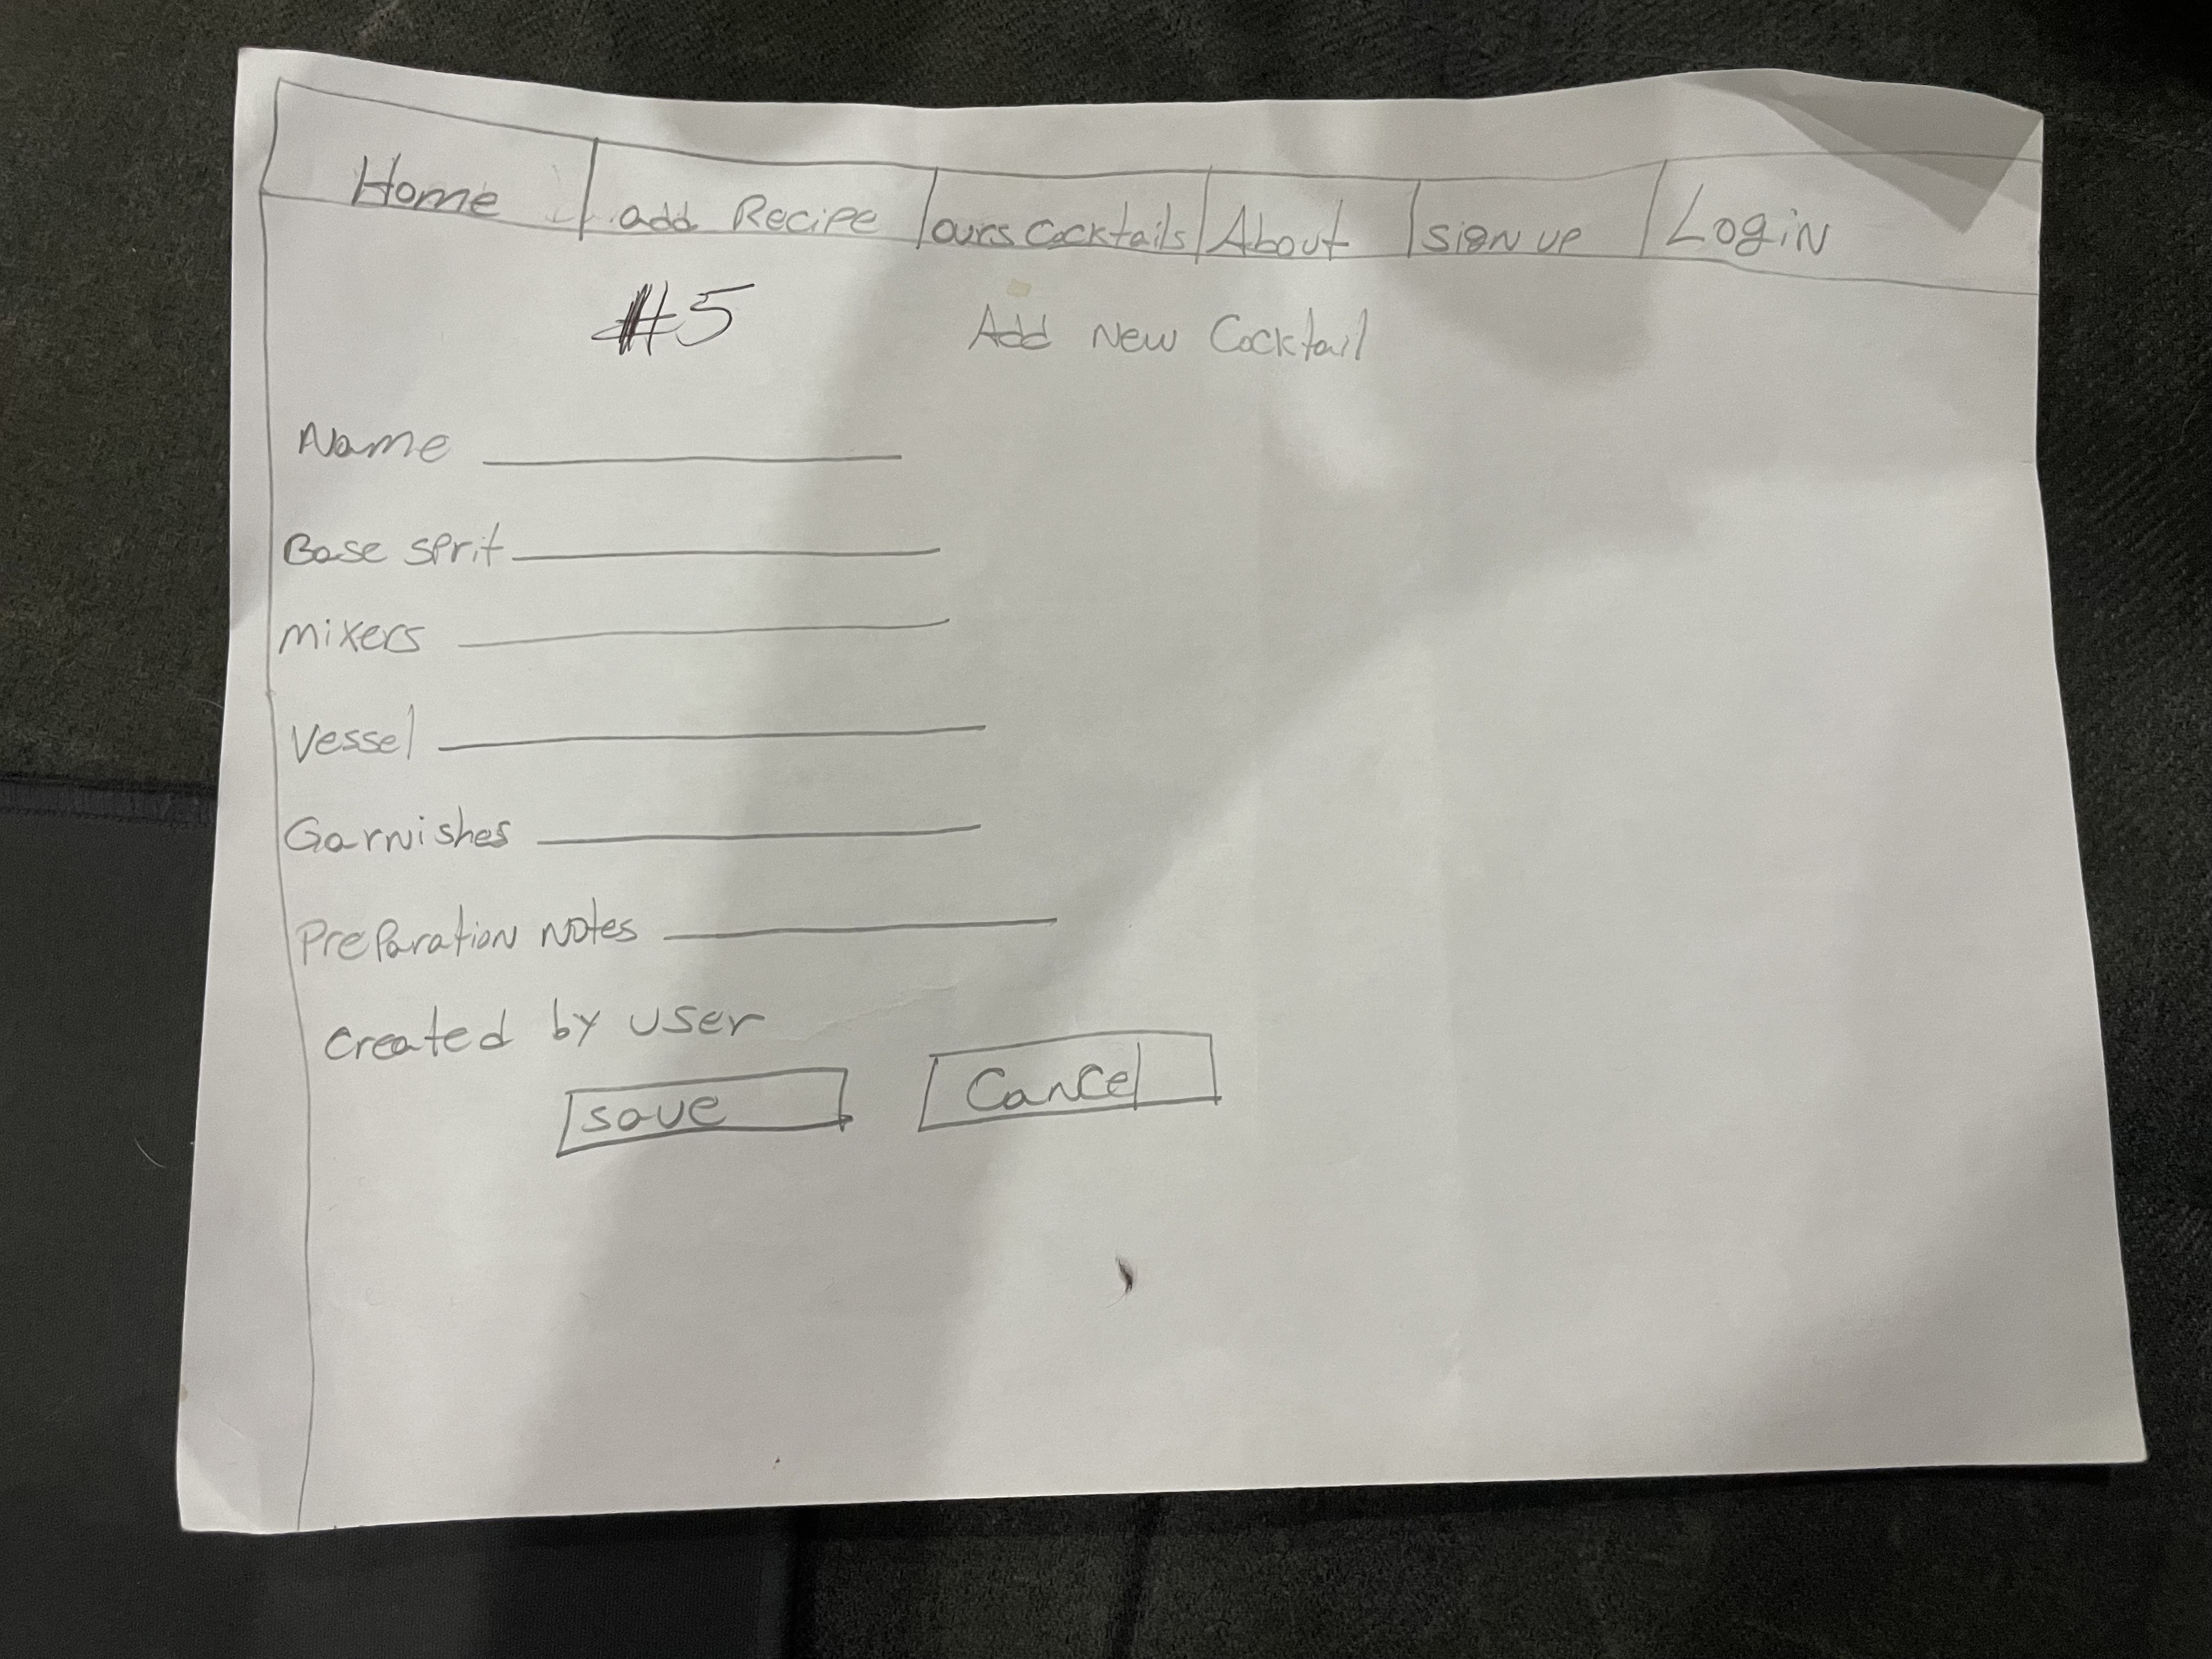 Home add Recipe ours Cocktails About sign up Login
#5 Add New Cocktail
Name
Base sprit
mixers
Vessel
Garnishes
Preparation notes
created by user
save Cancel